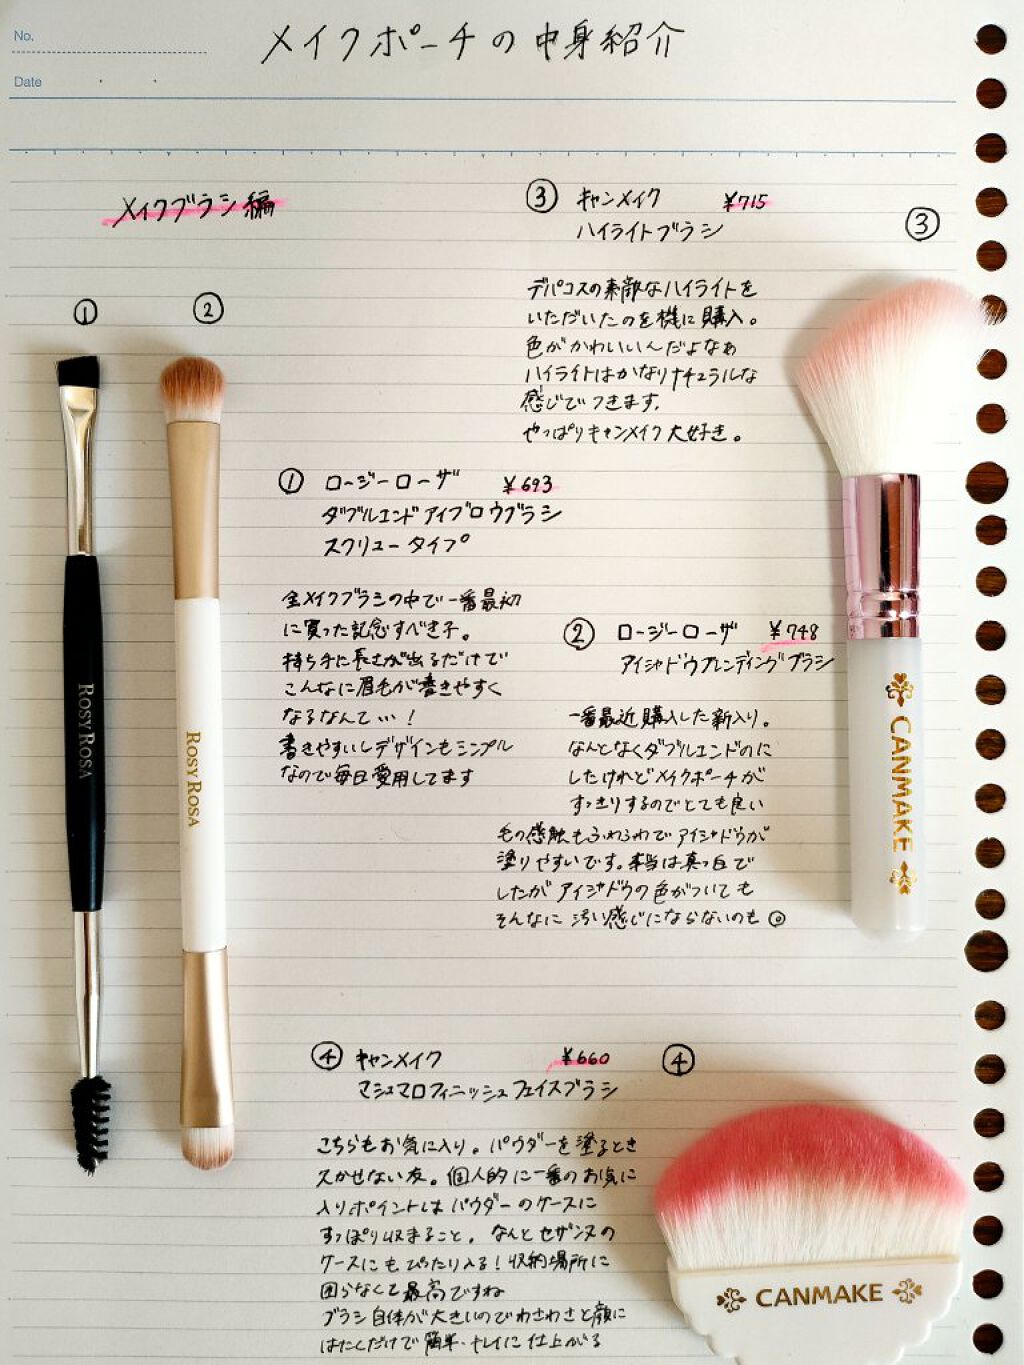 No.
Date
メイクポーチの中身紹介
メイクブラシ編
①
②
③ キャンメイク ¥715
ハイライトブラシ
③
デパコスの素敵なハイライトを
いただいたのを機に購入。
色がかわいいんだよなぁ
ハイライトはかなりナチュラルな
感じでつきます。
やっぱりキャンメイク大好き。
① ロージーローザ ¥693
ダブルエンドアイブロウブラシ
スクリュータイプ
全メイクブラシの中で一番最初
に買った記念すべき子。
持ち手に長さが出るだけで
こんなに眉毛が書きやすく
なるなんて…!
書きやすいしデザインもシンプル
なので毎日愛用してます
② ロージーローザ ¥748
アイシャドウブレンディングブラシ
一番最近購入した新入り。
なんとなくダブルエンドのに
したけれどメイクポーチが
すっきりするのでとても良い
毛の感触もふわふわでアイシャドウが
塗りやすいです。本当は真っ白で
したがアイシャドウの色がついても
そんなに汚い感じにならないのも◎
ROSY ROSA
ROSY ROSA
CANMAKE
④ キャンメイク ¥660
マシュマロフィニッシュフェイスブラシ
④
こちらもお気に入り。パウダーを塗るとき
欠かせない友。個人的に一番のお気に
入りポイントはパウダーのケースに
すっぽり収まること。なんとセザンヌの
ケースにもぴったり入る!収納場所に
困らなくて最高ですね
ブラシ自体が大きいのでわさわさと顔に
はたくだけで簡単・キレイに仕上がる
CANMAKE